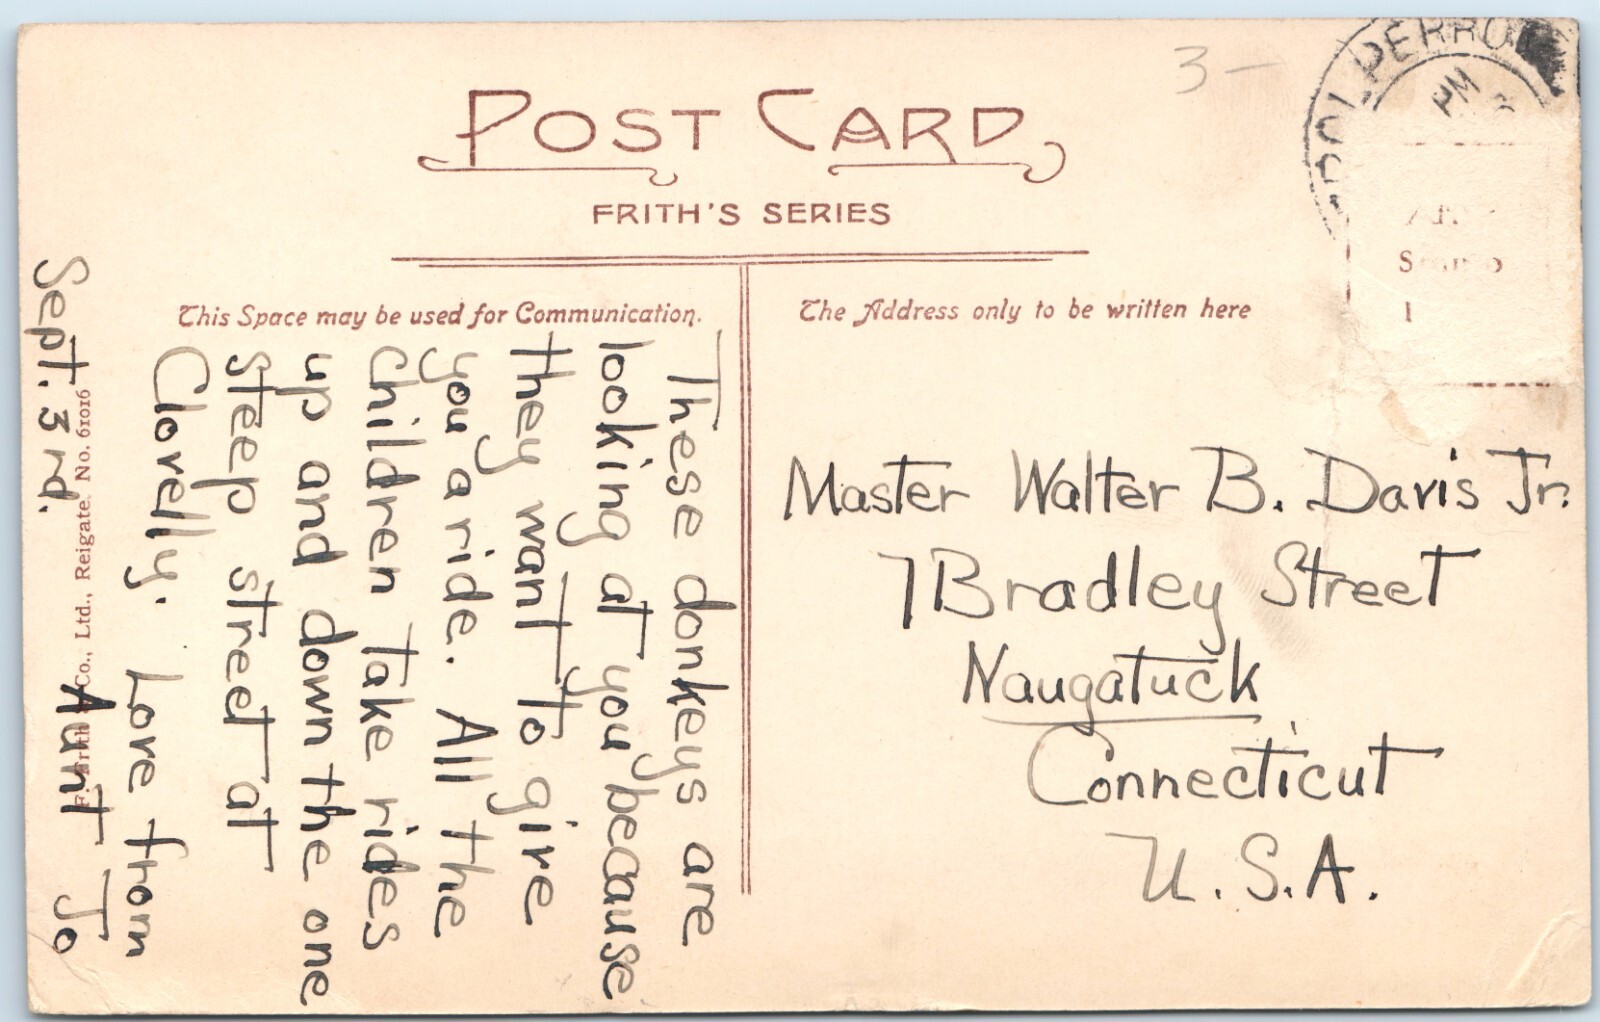 3 —
POLPERRO
PM
POST CARD
FRITH'S SERIES
This Space may be used for Communication.
The Address only to be written here
These donkeys are
looking at you because
they want to give
you a ride. All the
children take rides
up and down the one
steep street at
Clovelly. Love from
Sept. 3rd. Aunt Jo
F. Frith & Co., Ltd., Reigate. No. 61016
Master Walter B. Davis Jr.
7 Bradley Street
Naugatuck
Connecticut
U.S.A.